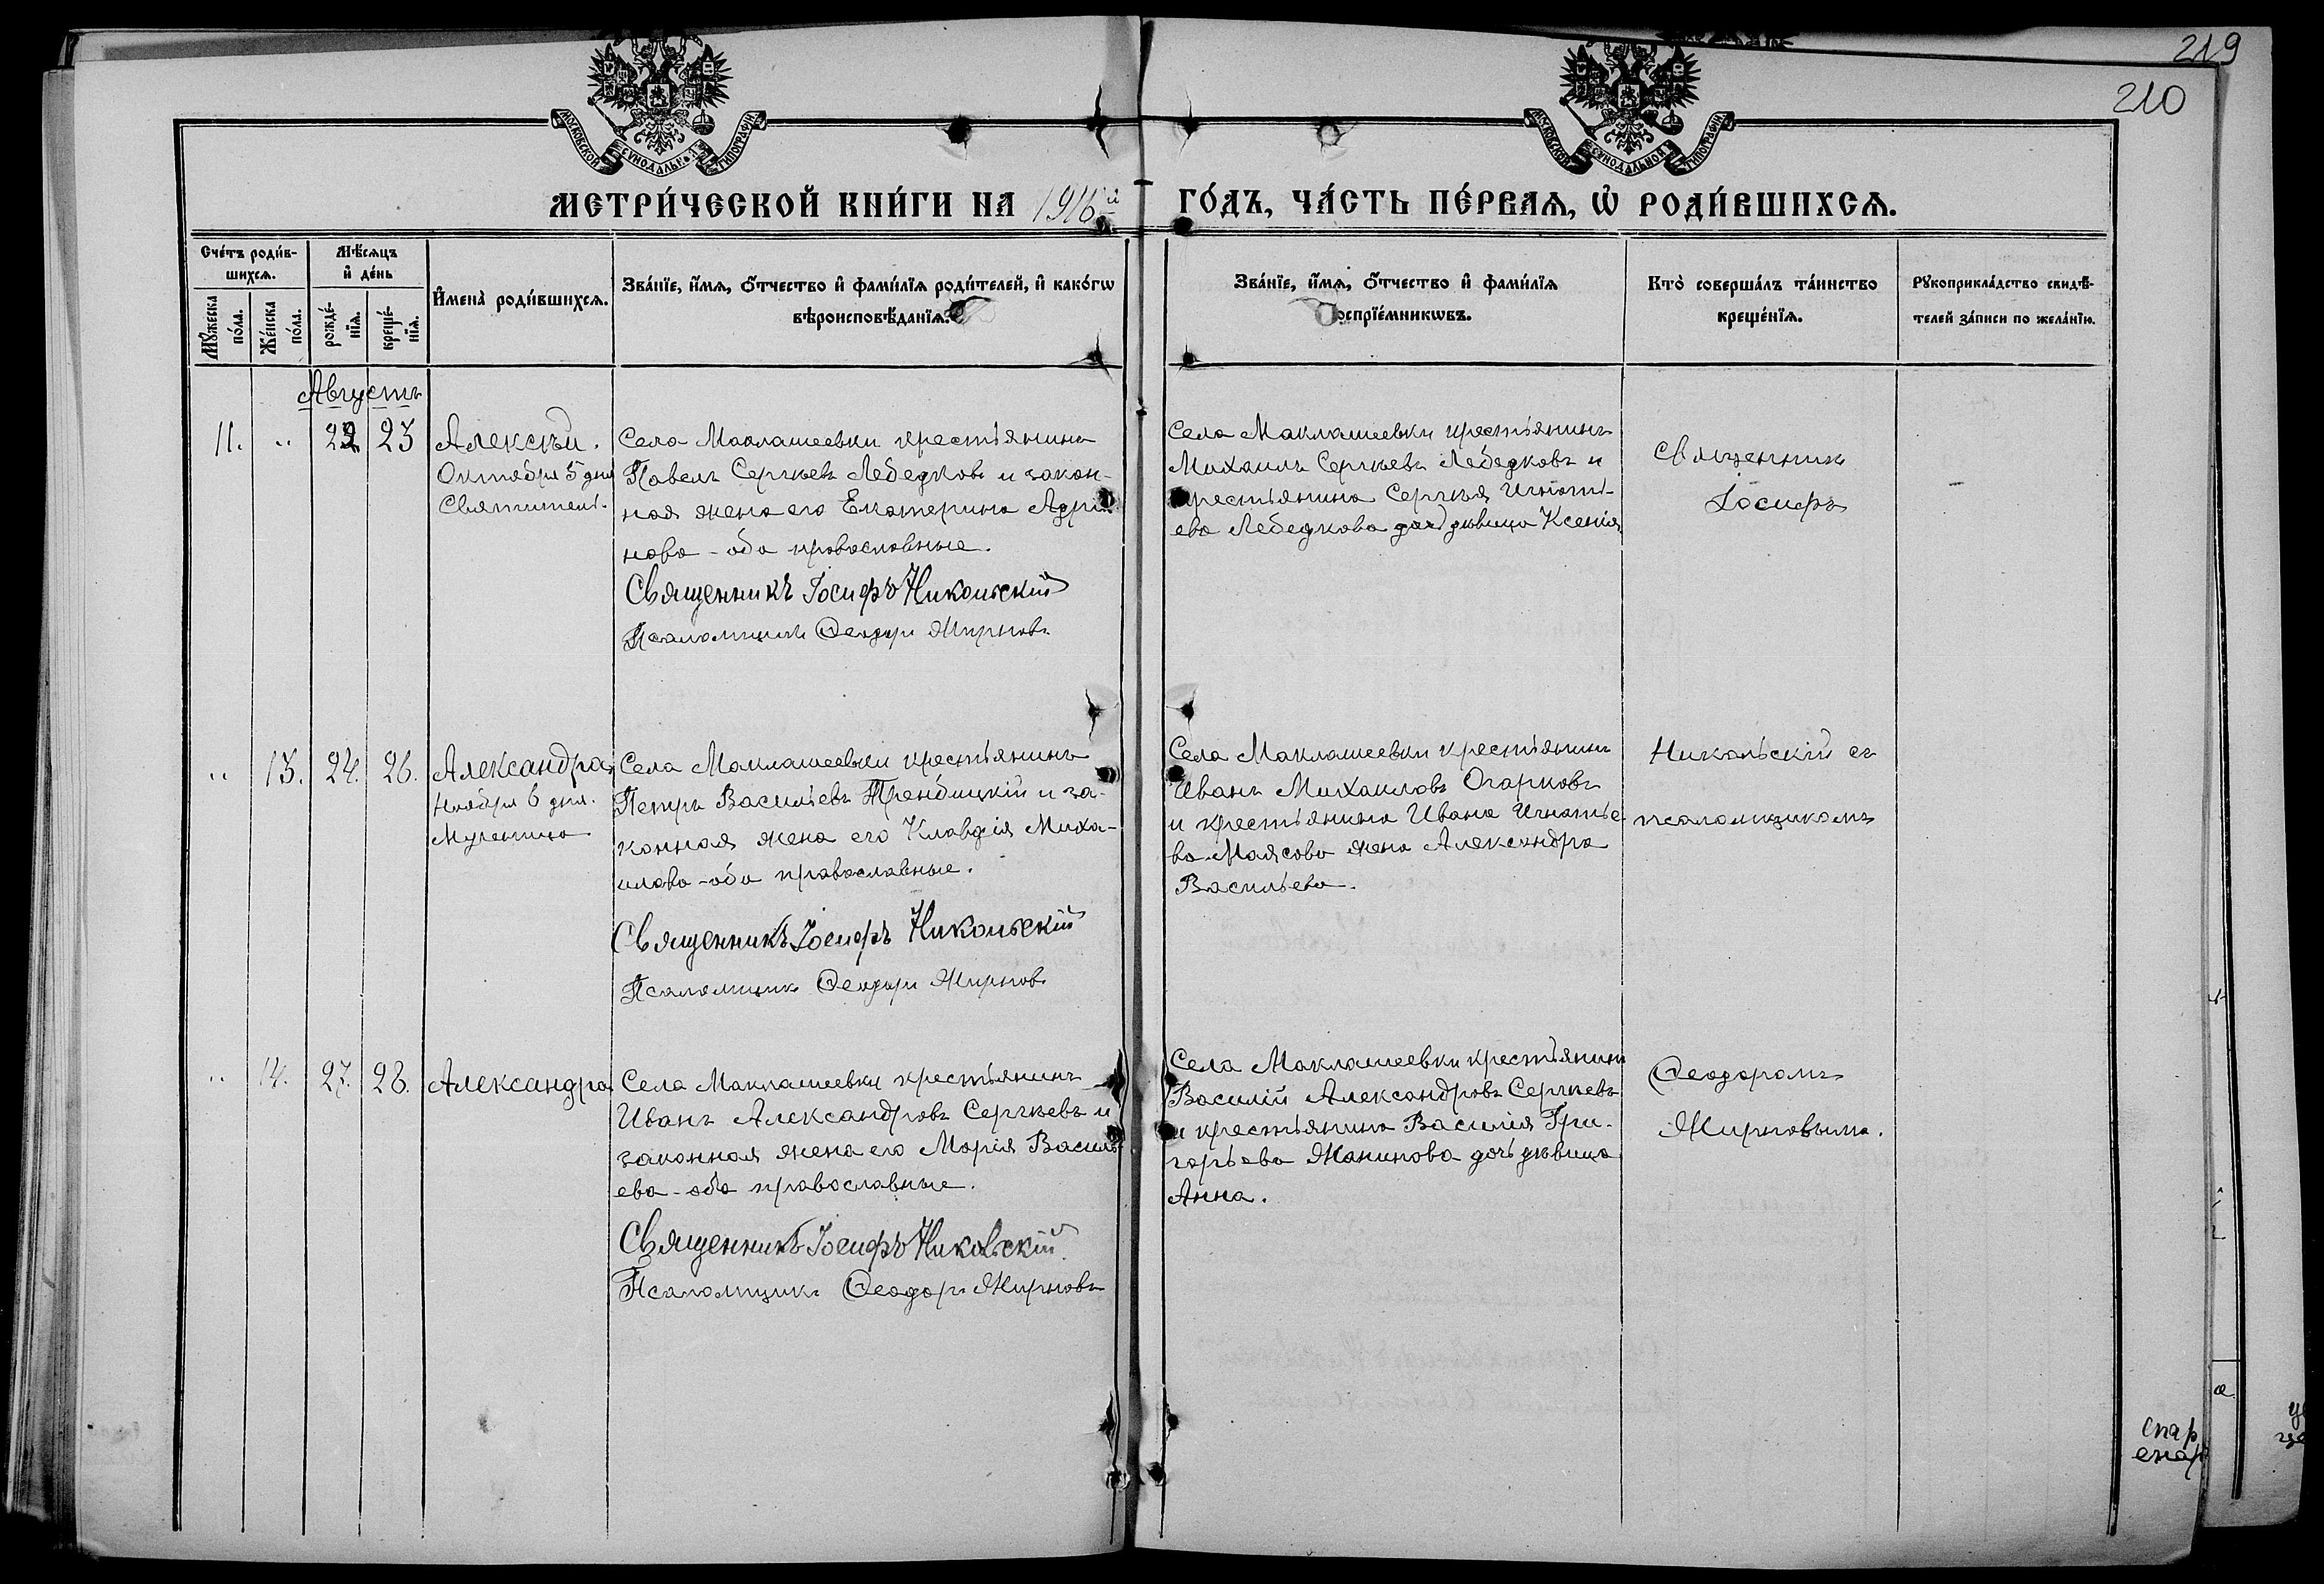 219
210
МОСКОВСКОЙ СѴНОДАЛЬНОЙ ТИПОГРАФІИ
МОСКОВСКОЙ СѴНОДАЛЬНОЙ ТИПОГРАФІИ
МЕТРИ́ЧЕСКОЙ КНИ́ГИ НА 1916й ГО́ДЪ, ЧА́СТЬ ПЕ́РВАѦ, Ѡ҆ РОДИ́ВШИХСѦ.
Сче́тъ роди́в-
шихсѧ.
Мꙋжеска по́ла.
Же́нска по́ла.
Мѣ́сѧцъ
и҆ де́нь
рожде́-
нїѧ.
креще́-
нїѧ.
И҆мена̀ роди́вшихсѧ.
Зва́нїе, и҆́мѧ, ѻ҆́тчество и҆ фами́лїѧ роди́телей, и҆ како́гѡ
вѣроисповѣ́данїѧ.
Зва́нїе, и҆́мѧ, ѻ҆́тчество и҆ фами́лїѧ
воспрїе́мникѡвъ.
Кто̀ соверша́лъ та́инство
креще́нїѧ.
Рꙋкоприкла́дство свидѣ́-
телей за́писи по жела́нїю.
Августъ
11. " 22 23 Алексѣй.
Октября 5 дня
Святитель.
Села Маклашеевки крестьянинъ
Павелъ Сергѣевъ Лебедковъ и закон-
ная жена его Екатерина Адріа-
нова - оба православные.
Священникъ Іосифъ Никольскій
Псаломщикъ Ѳеодоръ Жирновъ
Села Маклашеевки крестьянинъ
Михаилъ Сергѣевъ Лебедковъ и
крестьянина Сергѣя Игнать-
ева Лебедкова дочь дѣвица Ксенія
Священникъ
Іосифъ
" 13. 24. 26. Александра
Ноября 6 дня.
Мученица
Села Маклашеевки крестьянинъ
Петръ Васильевъ Трендицкій и за-
конная жена его Клавдія Миха-
илова - оба православные.
Священникъ Іосифъ Никольскій
Псаломщикъ Ѳеодоръ Жирновъ
Села Маклашеевки крестьянинъ
Иванъ Михаиловъ Огарковъ
и крестьянина Ивана Игнатье-
ва Маясова жена Александра
Васильева.
Никольскій съ
псаломщикомъ
" 14. 27. 28. Александра
Села Маклашеевки крестьянинъ
Иванъ Александровъ Сергѣевъ и
законная жена его Марія Василь-
ева - оба православные.
Священникъ Іосифъ Никольскій
Псаломщикъ Ѳеодоръ Жирновъ
Села Маклашеевки крестьянинъ
Василій Александровъ Сергѣевъ
и крестьянина Василія Гри-
горьева Жанинова дочь дѣвица
Анна.
Ѳеодоромъ
Жирновымъ.